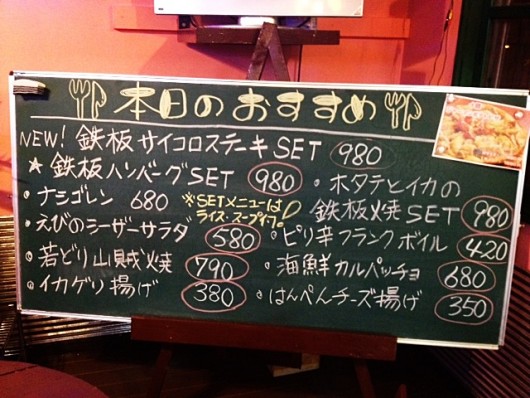 本日のおすすめ
NEW! 鉄板サイコロステーキSET 980
★鉄板ハンバーグSET 980
・ナシゴレン 680
※SETメニューは
ライス・スープ付。
・えびのシーザーサラダ 580
・若どり山賊焼 790
・イカゲソ揚げ 380
・ホタテとイカの
鉄板焼SET 980
・ピリ辛フランクボイル 420
・海鮮カルパッチョ 680
・はんぺんチーズ揚げ 350